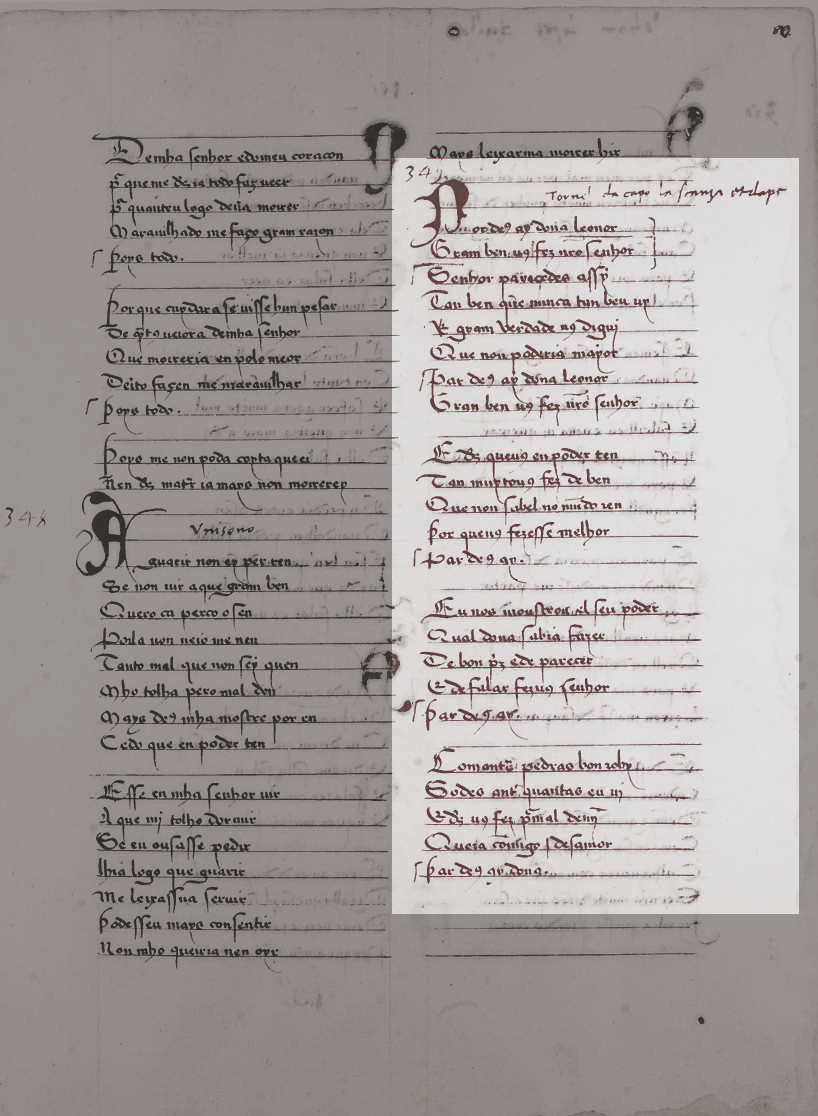 Demha senhor edomeu coraçon
p̃ que me dȝ ia todo faȝ veer
p̃ quanteu logo deuia moirer
Marauilhado me faço gram raȝon
Poys todo.
Por que cuydara se uisse hun pesar
De q̃to ueiora demha senhor
Que moireria en polo meor
Deito façen me marauilhar
Poys todo.
Poys me non poda coyta queei
Nen dȝ matr̃ ia mays non moirerey
348
Vnisono
A guarir non ey per ren
Se non uir aque gram ben
Quero ca perço o sen
Poila non ueio me nen
Tanto mal que non sey quen
Mho tolha pero mal den
Mays deꝯ mha mostre por en
Cedo que en poder ten
Esse en mha senhor uir
A que mi tolho dormir
Se eu ousasse pedir
lhia logo que guarir
Me leixassua seruir
Podesseu mays consentir
Non mho queiria nen oyr
Mays leyxarma moirer hir
349
Torna da capo la stanza
Por deꝯ ay dona leonor
Gram ben uꝯ fez nr̃o senhor
Senhor parecedes assy
Tan ben que nunca tan ben uy
E gram verdade uꝯ digui
Que non poderia mayor
Par deꝯ ay dona leonor
Gran ben uꝯ fez nr̃o senhor
E dȝ queuꝯ en poder ten
Tan muytouꝯ fez de ben
Que non sabel no mũdo ren
Por queuꝯ fezesse melhor
Par deꝯ ay.
Eu uos mostrou el seu poder
Qual dona sabia fazer
De bon p̃z ede parecer
E de falar fezuꝯ senhor
Par deꝯ ay.
Comantr̃ pedras bon roby
Sodes antr̃ quantas eu ui
Edȝ uꝯ fez p̃ mal demĩ
Queia cõmigo desamor
Par deꝯ ay dona.